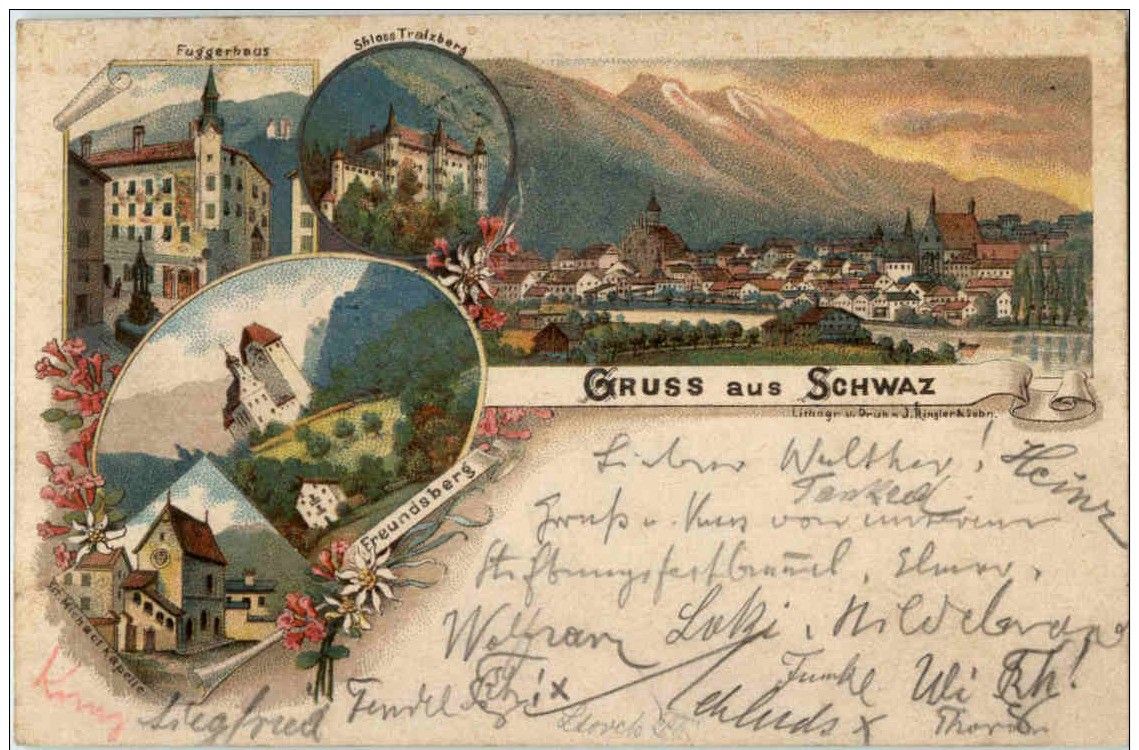 Fuggerhaus
Shloss Tratzberg
GRUSS AUS SCHWAZ
Lithogr u. Druck v. J. Ringler & Sohn.
Freundsberg
St. Michaelskapelle
Lieber Walther! Heinz
Tankred
Gruß u. Kuss von unserem
Stiftungsfestbummel, Elmar,
Wolfram Loki, Hildebrand
Funke Uli
Siegfried